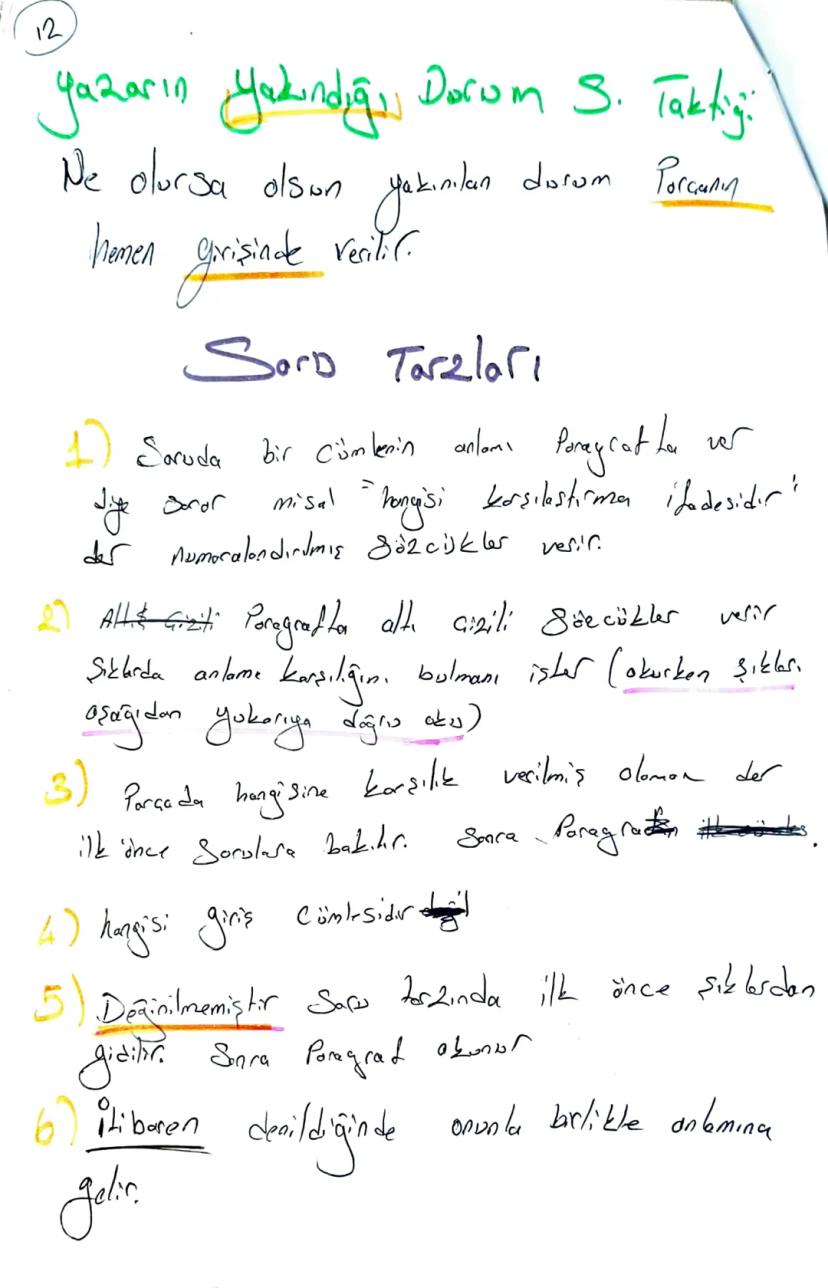 12
Yazarın Yakındığı Durum S. Taktiği
Ne olursa olsun yakınılan durum Parçanın
hemen girişinde verilir.
Soru Tarzları
1) Soruda bir cümlenin anlamı Paragrafta ver
diye sorar misal "hangisi karşılaştırma ifadesidir"
der Numaralandırılmış Sözcükler verir.
2) Altı Çizili Paragrafta altı çizili Sözcükler verir
Şıklarda anlamca karşılığını bulmanı ister (okurken şıkları
aşağıdan yukarıya doğru oku)
3) Parçada hangisine karşılık verilmiş olamaz der
ilk önce Sorulara bakılır. Sonra Paragraf
4) hangisi giriş Cümlesidir
5) Değinilmemiştir Soru tarzında ilk önce şıklardan
gidilir. Sonra Paragraf okunur
6) İtibaren denildiğinde onunla birlikte anlamına
gelir.